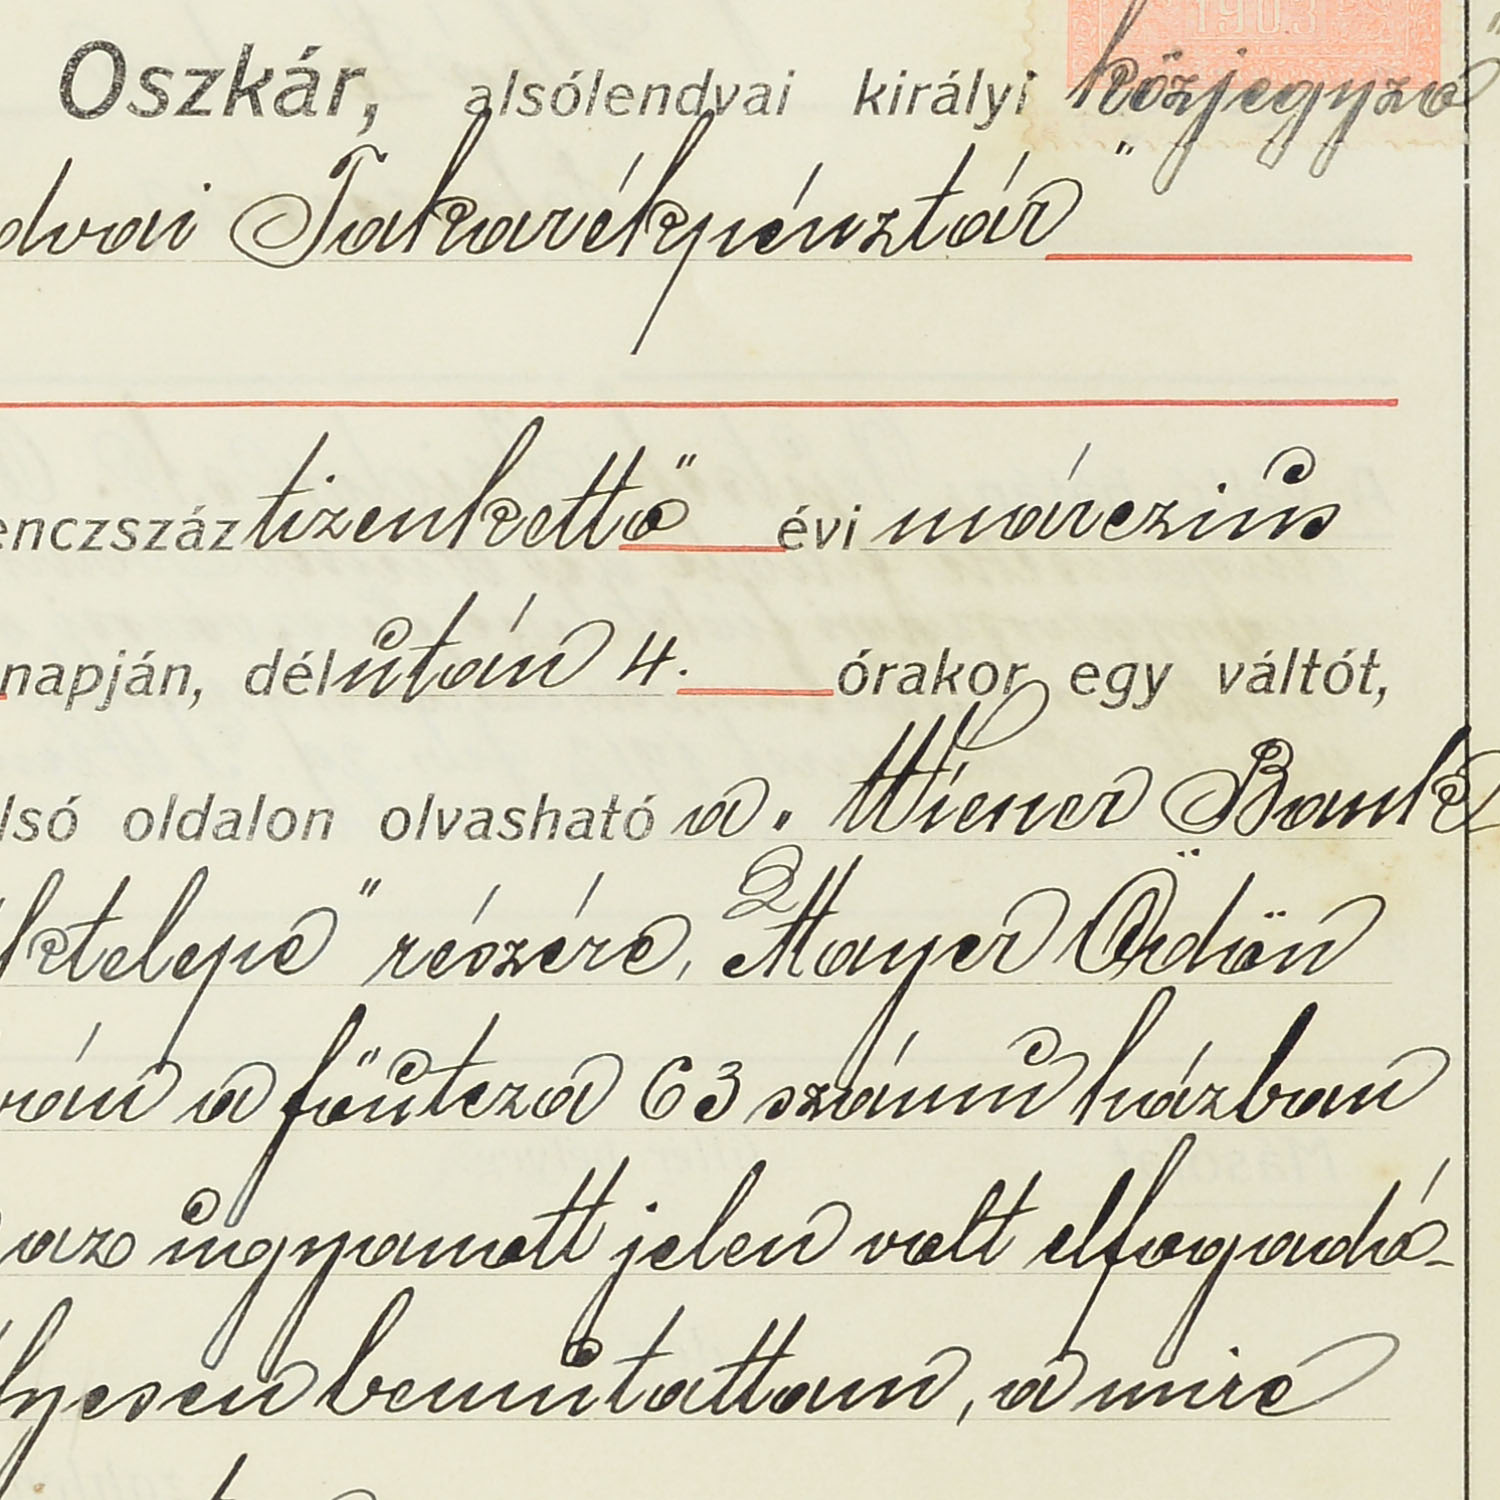 1903
Oszkár, alsólendvai királyi közjegyző
dvai Takarékpénztár"
enczszáz tizenkettő évi márczius
napján, délután 4. órakor egy váltót,
lsó oldalon olvasható a „Wiener Bank
ktelepe" részére, Mayer Ödön
rán a főutcza 63 számú házban
az ugyanott jelen volt elfogadó-
lyesen bemutattam, a mire